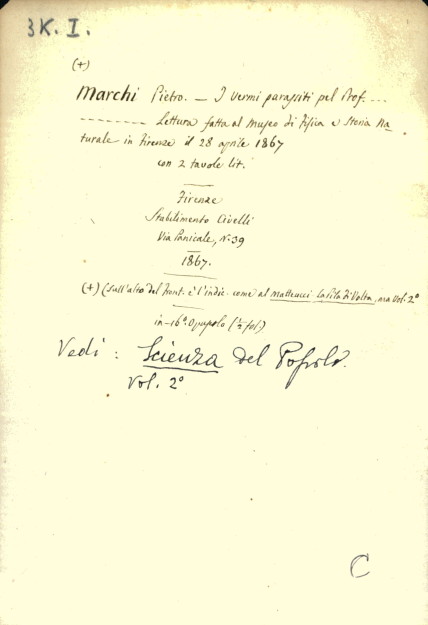 3K. I.
(+)
Marchi Pietro. — I vermi parassiti pel Prof. ...
-------- Lettura fatta al Museo di Fisica e Storia Na
turale in Firenze il 28 aprile 1867
con 2 tavole lit.
Firenze
Stabilimento Civelli
Via Panicale, N. 39
1867.
(+) (Sull'alto del front. è l'indic. come al Matteucci La Pila di Volta, ma Vol. 2º
in-16º. Opuscolo (½ fol.)
Vedi : Scienza del Popolo.
Vol. 2º
C